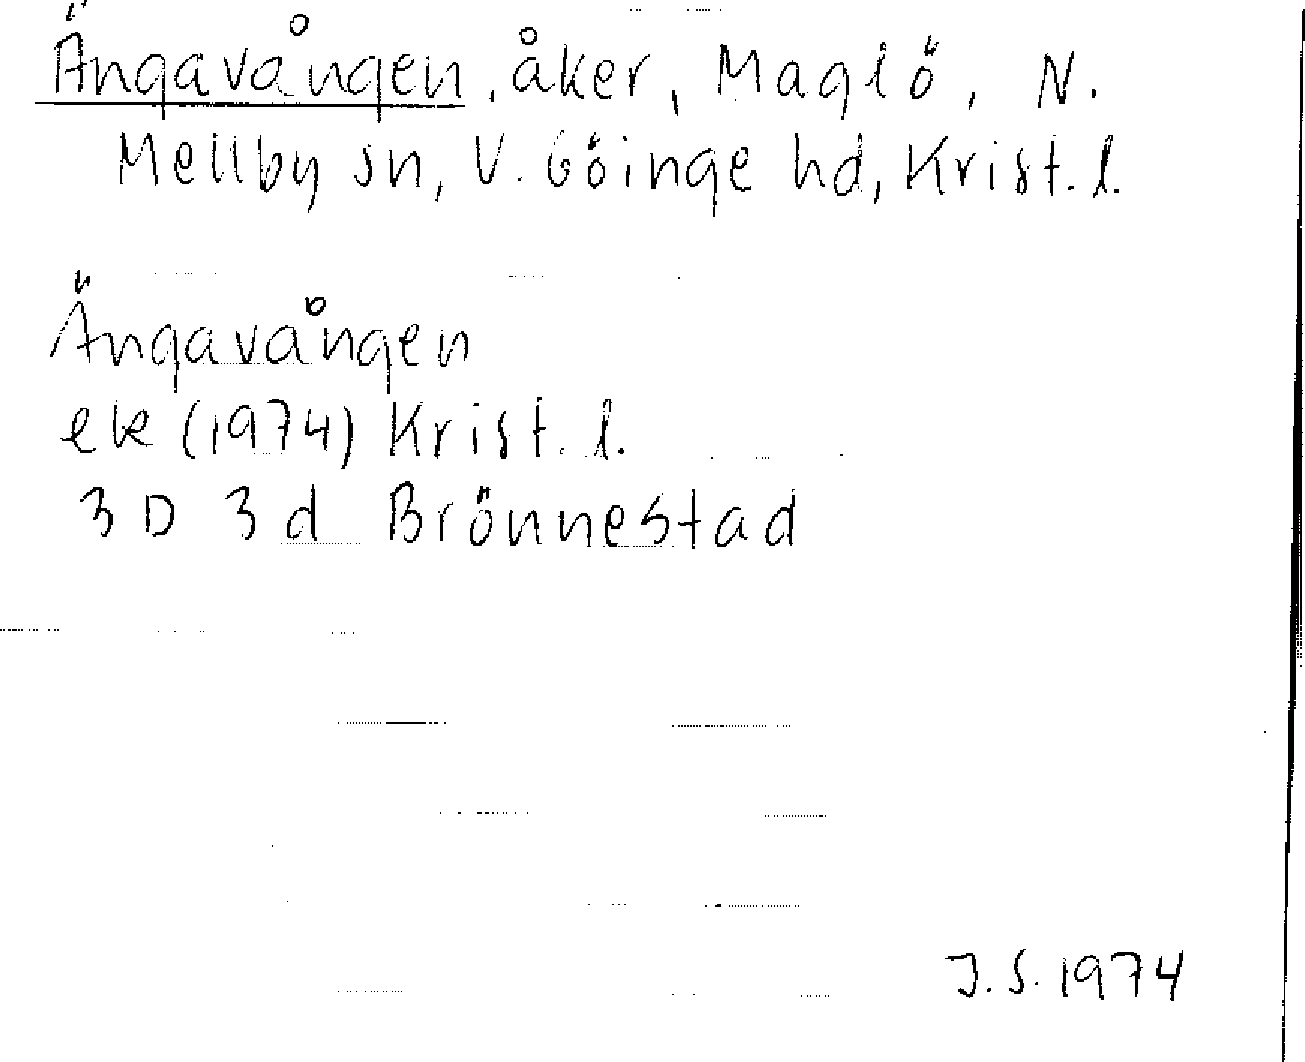 Ängavången, åker, Maglö, N.
Mellby sn, V. Göinge hd, Krist. l.
Ängavången
ek (1974) Krist. l.
3D 3d Brönnestad
J.S. 1974